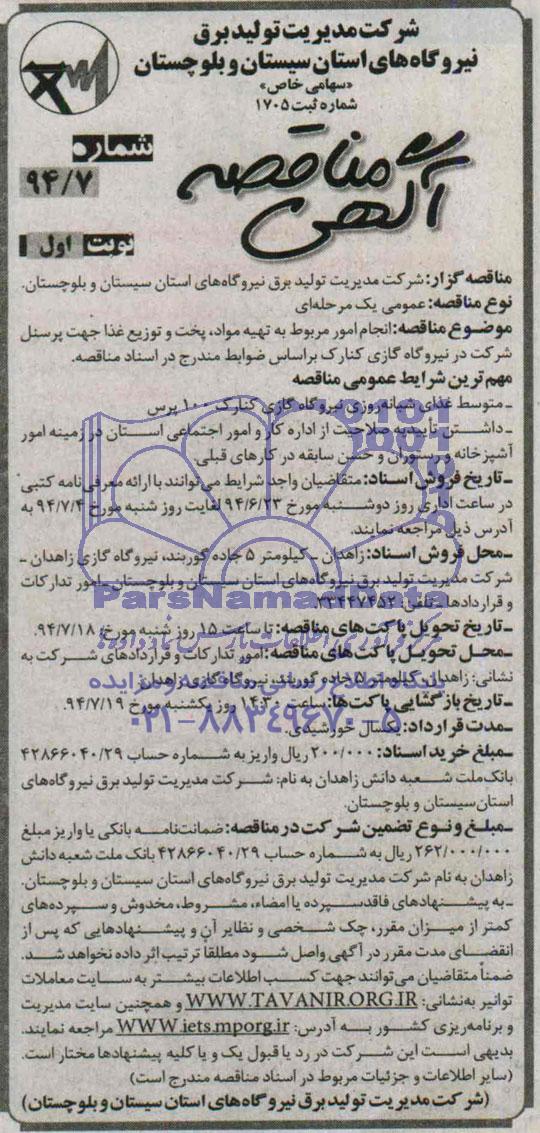 شرکت مدیریت تولید برق
نیروگاه‌های استان سیستان و بلوچستان
«سهامی خاص»
شماره ثبت ۱۷۰۵
آگهی مناقصه
شماره
۹۴/۷
نوبت اول
مناقصه گزار: شرکت مدیریت تولید برق نیروگاه‌های استان سیستان و بلوچستان.
نوع مناقصه: عمومی یک مرحله‌ای
موضوع مناقصه: انجام امور مربوط به تهیه مواد، پخت و توزیع غذا جهت پرسنل
شرکت در نیروگاه گازی کنارک براساس ضوابط مندرج در اسناد مناقصه.
مهم ترین شرایط عمومی مناقصه
ـ متوسط غذای شبانه‌روزی نیروگاه گازی کنارک ۱۰۰ پرس
ـ داشتن تأییدیه صلاحیت از اداره کار و امور اجتماعی استان در زمینه امور
آشپزخانه و رستوران و حسن سابقه در کارهای قبلی
ـ تاریخ فروش اسناد: متقاضیان واجد شرایط می‌توانند با ارائه معرفی‌نامه کتبی
در ساعات اداری روز دوشنبه مورخ ۹۴/۶/۲۳ لغایت روز شنبه مورخ ۹۴/۷/۴ به
آدرس ذیل مراجعه نمایند.
ـ محل فروش اسناد: زاهدان ـ کیلومتر ۵ جاده گوربند، نیروگاه گازی زاهدان ـ
شرکت مدیریت تولید برق نیروگاه‌های استان سیستان و بلوچستان ـ امور تدارکات
و قراردادها ـ تلفن: ۳۳۴۴۷۴۵۲
ParsNamadData
ـ تاریخ تحویل پاکت‌های مناقصه: تا ساعت ۱۵ روز شنبه مورخ ۹۴/۷/۱۸.
ـ محل تحویل پاکت‌های مناقصه: امور تدارکات و قراردادهای شرکت به
نشانی: زاهدان، کیلومتر ۵ جاده گوربند، نیروگاه گازی زاهدان
پایگاه اطلاع رسانی مناقصه و مزایده
ـ تاریخ بازگشایی پاکت‌ها: ساعت ۱۴:۳۰ روز یکشنبه مورخ ۹۴/۷/۱۹.
۰۲۱-۸۸۳۴۹۶۷۰-۵
ـ مدت قرارداد: یکسال خورشیدی.
ـ مبلغ خرید اسناد: ۲۰۰/۰۰۰ ریال واریز به شماره حساب ۴۲۸۶۶۰۴۰/۲۹
بانک ملت شعبه دانش زاهدان به نام: شرکت مدیریت تولید برق نیروگاه‌های
استان سیستان و بلوچستان.
ـ مبلغ و نوع تضمین شرکت در مناقصه: ضمانت‌نامه بانکی یا واریز مبلغ
۲۶۲/۰۰۰/۰۰۰ ریال به شماره حساب ۴۲۸۶۶۰۴۰/۲۹ بانک ملت شعبه دانش
زاهدان به نام شرکت مدیریت تولید برق نیروگاه‌های استان سیستان و بلوچستان.
ـ به پیشنهادهای فاقد سپرده یا امضاء، مشروط، مخدوش و سپرده‌های
کمتر از میزان مقرر، چک شخصی و نظایر آن و پیشنهادهایی که پس از
انقضای مدت مقرر در آگهی واصل شود مطلقا ترتیب اثر داده نخواهد شد.
ضمناً متقاضیان می‌توانند جهت کسب اطلاعات بیشتر به سایت معاملات
توانیر به‌نشانی: WWW.TAVANIR.ORG.IR و همچنین سایت مدیریت
و برنامه‌ریزی کشور به آدرس: WWW.iets.mporg.ir مراجعه نمایند.
بدیهی است این شرکت در رد یا قبول یک و یا کلیه پیشنهادها مختار است.
(سایر اطلاعات و جزئیات مربوط در اسناد مناقصه مندرج است)
(شرکت مدیریت تولید برق نیروگاه‌های استان سیستان و بلوچستان)